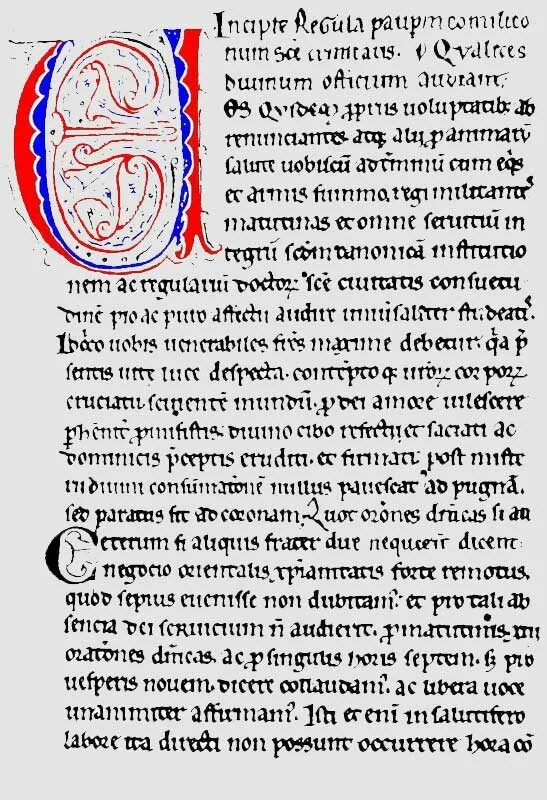 Incipit Regula paupm comilico
num sce ciuitatis. Qualites
diuinum officium audiant.
os Quidē ꝓpriis uoluptatibꝫ ab
renunciantes atqꝫ alii ꝓ animarū
salute uobiscū ad t̄minū cum eq̄s
et armis summo regi militantes
matutinas et omne seruitiū in
tegrū scdm canonicā institutio
nem ac regulariū doctoꝝ sce ciuitatis consuetu
dinē pio ac puro affectu audire uniūsaliter studeatis.
Idcirco uobis uenerabiles frēs maxime debetur q̄a p̄
sentis uite luce despecta. contēpto qꝫ urōꝝ corporꝝ
cruciatu seuientē mundū ꝓ dei amore uilescere
ꝑhēnit̄ ꝓmisistis diuino cibo refecti et saciati ac
dominicis p̄ceptis eruditi et firmati post miste
rii diuini consūmatōnē nullus pauescat ad pugnā.
sed paratus sit ad coronam. Quot orōnes dn̄icas si au
Ceterum si aliquis frater due nequierit dicent.
negocio orientalis xp̄ianitatis forte remotus.
quod sepius euenisse non dubitam᷒. et pro tali ab
sencia dei seruicium nō audierit. ꝓ matutinis xiii
oratōnes dn̄icas. ac ꝓ singulis horis septem. sꝫ pro
uesperis nouem dicere collaudam᷒. ac libera uoce
unanimiter affirmam᷒. Isti et enī in salutifero
labore ita directi non possunt occurrere hora cō